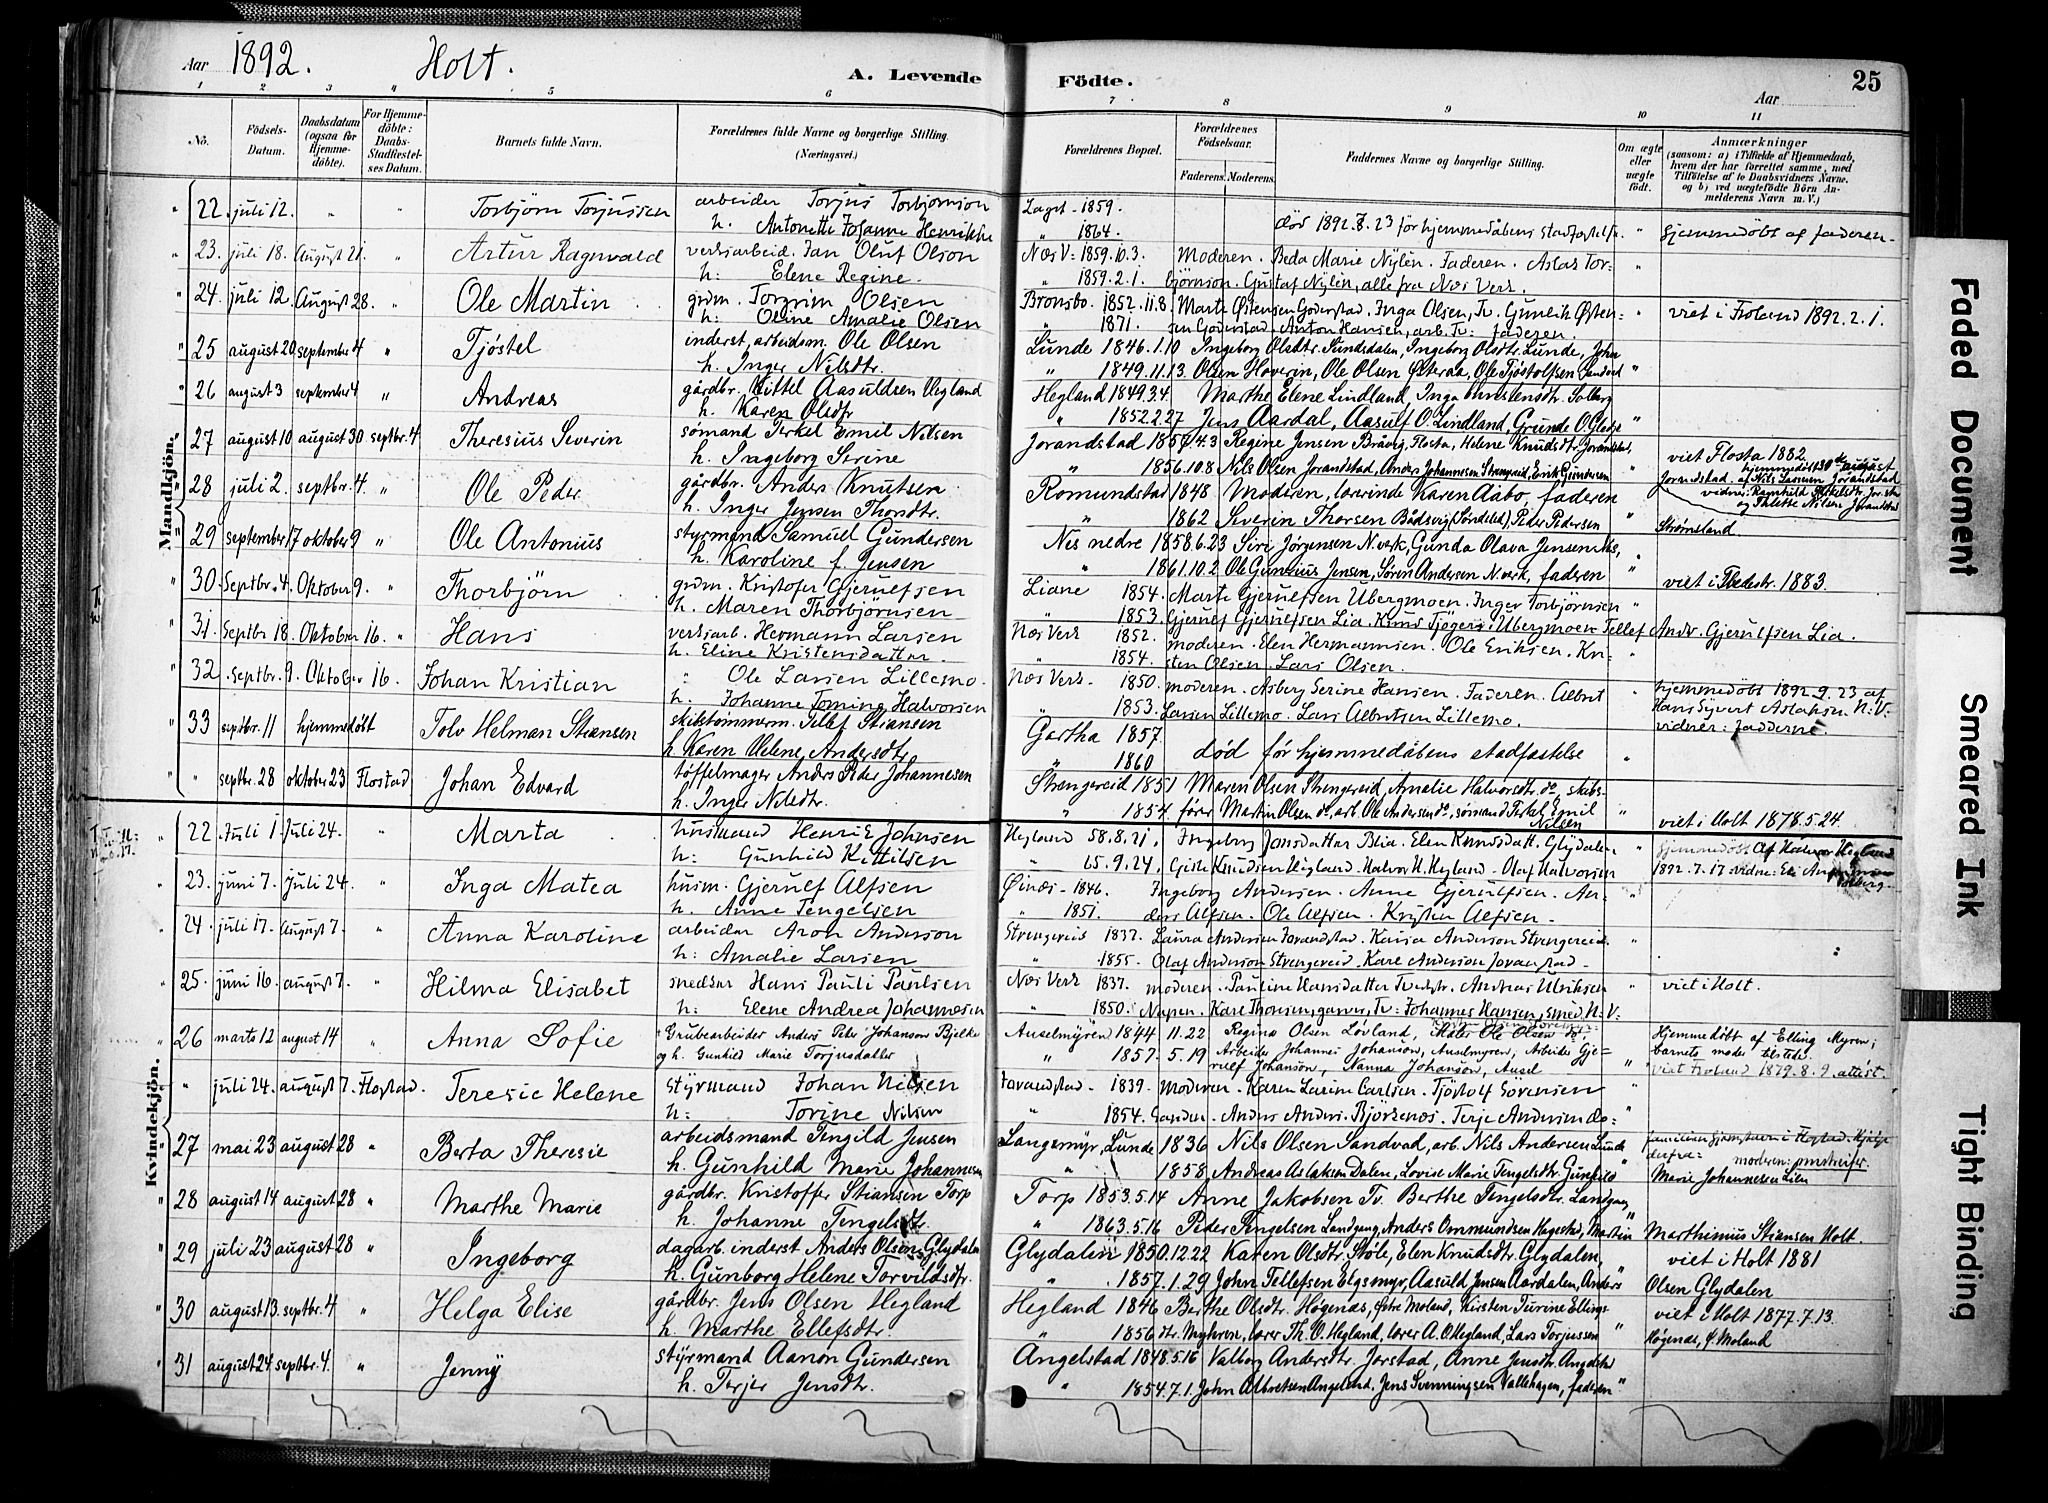 Aar 1892. Holt. A. Levende Födte. Aar 25
1 2 3 4 5 6 7 8 9 10 11
No. Födsels-Datum. Daabsdatum (ogsaa for Hjemmedöbte). For Hjemmedöbte: Daabs-Stadfæstelses Datum. Barnets fulde Navn. Forældrenes fulde Navne og borgerlige Stilling. (Næringsvei.) Forældrenes Bopæl. Forældrenes Födselsaar. Faderens. Moderens. Faddernes Navne og borgerlige Stilling. Om ægte eller uægte födt. Anmærkninger (saasom: a) i Tilfælde af Hjemmedaab, hvem der har forrettet samme, med Tilföielse af to Daabsvidners Navne. og b) ved uægtefödte Börn Anmelderens Navn m. V.)
Mandkjön.
22. juli 12. " " Torbjørn Torjussen arbeider Torjus Torbjørnson Laget 1859.
h. Antonette Josanne Henrikke " 1864. død 1892.8.23 før hjemmedåbens stadfæstelse " hjemmedøbt af faderen
23. juli 18. August 21. " Artur Ragnvald verksarbeid. Jan Oluf Olson Næs V: 1859.10.3. Moderen. Beda Marie Nylén. Faderen. Aslak Tor-
h: Elene Regine. 1859.2.1. bjørnson. Gustaf Nylén, alle fra Næs Verk.
24. juli 12. August 28. " Ole Martin grdm. Torgrim Olsen Brønsbo. 1852.11.8. Marte Østensen Goderstad. Inga Olsen, Tv. Gunleik Østen- " viet i Froland 1892.2.1.
h: Oline Amalie Olsen " 1871. sen Goderstad, Anton Hansen, arb. Tv: faderen
25 august 20 september 4 " Tjøstel inderst, arbeidsm. Ole Olsen Lunde 1846.1.10 Ingeborg Olsdtr. Sundsdalen, Ingeborg Olsdtr. Lunde, John
h. Inger Nilsdtr. " 1849.11.13. Olsen Hoverin, Ole Olsen Østerdø, Ole Tjøstolfsen
26 august 3 september 4 " Andreas gårdbr. Kittel Aasuldsen Hegland Hegland 1849.3.4. Marthe Elene Lindland, Inga Christensdtr. Solberg
h. Karen Olsdtr " 1852.2.27 Jens Aardal, Aasulf O. Lindland, Grunde O.
27 august 10 august 30 septbr. 4 Theresius Severin sømand Terkel Emil Nilsen Jorandstad 1857.4.3 Regine Jensen Bråvig, Flosta, Helene Knudsdtr. Jorandstad, viet Flosta 1882
h. Ingeborg Serine " 1856.10.8 Nils Olsen Jorandstad, Anders Johannesen Strengereid, Erik Gundersen hjemmedøbt 30te august
28 juli 2. septbr. 4. " Ole Peder gårdbr. Anders Knutsen Romundstad 1848 Moderen, lærerinde Karen Aabo, faderen Jorandstad. af Nils Larssen Jorandstad
h. Inger Jensen Thorsdtr. " 1862 Severin Thorsen Bådsvig (Søndeled), Peder Pedersen " Strømsland.
29 september 17 oktober 9 " Ole Antonius styrmand Samuel Gundersen Nes nedre 1858.6.23 Siri Jørgensen N.verk, Gunda Olava Jensen Næs,
h. Karoline f. Jensen " 1861.10.2 Ole Gunerius Jensen, Søren Andersen N. verk, faderen
30. Septbr. 4. Oktober 9. " Thorbjörn grdm. Kristofer Gjerulfsen Liane 1854. Marte Gjerulfsen Ubergmoen. Inger Torbjörnsen " viet i Tvedestr. 1883.
h. Maren Thorbjörnsen " 1853. Gjerulf Gjerulfsen Lia. Ubergmoen. Tellef Andr. Gjerulfsen Lia.
31. Septbr 18. Oktober 16. " Hans verksarb. Hermann Larsen Næs Verk 1852. moderen. Elen Hermannsen. Ole Eriksen. Kri-
h. Eline Kristensdatter. " 1854. sten Olsen. Lars Olsen.
32 Septbr. 9. Oktober 16. Johan Kristian " Ole Larsen Lillemo. Næs Verk 1850. moderen. Asberg Serine Hansen. Faderen. Albret " hjemmedøbt 1892.9.23 af
h. Johanne Tomine Halvorsen " 1853. Larsen Lillemo. Lars Albretsen Lillemo. Hans Syvert Aslaksen N.V.
33 septbr. 11 hjemmedøbt Tolv Helman Stiansen skibtømmerm. Tellef Stiansen Gartha 1857 vidner: fadderne.
h. Karen Helene Andersdtr " 1860 død før hjemmedåbens stadfæstelse
" septbr. 28 oktober 23 Flostad Johan Edvard tøffelmager Anders Peder Johannesen Strengereid 1851 Maren Olsen Strengereid, Amalie Halvorsdtr. do, skibs-
h. Inger Nilsdtr. " 1854. fører Martin Olsen do, arb. Ole Andersen do, sømand Terkel Emil Nilsen viet i Holt 1878.5.24.
Kvindekjön.
22 Juli 1. Juli 24. " Marta husmand Henrik Johnsen Hegland 58.8.21. Ingeborg Jonsdatter Blia. Elen Knudsdatt. Glydalen " hjemmedøbt af Halvor Hegland
h: Gunhild Kittilsen " 65.9.24. Knudsen Hegland. Halvor H. Hegland. Olaf Halvorsen 1892.7.17.
23. juni 7. Juli 24. " Inga Matea husm. Gjerulf Alfsen Øinæs 1846. Ingeborg Andersen. Anne Gjerulfsen. An-
h. Anne Tengelsen " 1851. ders Alfsen. Ole Alfsen. Kristen Alfsen.
24. juli 17. August 7. " Anna Karoline arbeider Aron Anderson Strengereid 1837. Laura Andersen Jorandstad. Kaisa Anderson Strengereid.
h: Amalie Larsen " 1855. Olaf Anderson Strengereid. Karl Anderson Jorandstad
25. juni 16. august 7. " Hilma Elisabet snedker Hans Pauli Paulsen Næs Verk 1837. moderen. Pauline Hansdatter Tvedestr. Andreas Ulriksen " viet i Holt.
h: Elene Andrea Johannesen " 1850. Napen. Karl Thoresen, garver, Tv. Johannes Hansen, smed N. V.
26 marts 12 august 14 " Anna Sofie Grubearbeider Anders Peter Johanson Bjelke Anselmyren 1844 11.22 Regine Olsen Lövland, Ole Olsen do. Hjemmedøbt af Elling Myren;
og h. Gunhild Marie Torjusdatter " 1857. 5.19 Arbeider Johannes Johanson, Anselmyren, Arbeider Gje- barnets moder tilstede.
rulf Johanson, Nanna Johanson, Ansel viet Froland 1879.8.9. attest.
" juli 24. august 7. Flostad. Teresie Helene styrmand Johan Nilsen Jorandstad 1839. moderen. Karen Larine Carlsen. Tjöstolf Sörensen
h: Torine Nilsen " 1854. Anders Anders. Björkenæs. Terje Andersen do.
27 mai 23 august 28 " Berta Theresie arbeidsmand Tengild Jensen Langemyr, Lunde 1836 Nils Olsen Sandvad, arb. Nils Andersen Lunde
h. Gunhild Marie Johannesen " 1858 Andreas Aslaksen Dalen, Lovise Marie Tengelsdtr. Gunhild Marie Johannesen Lien
28 august 14 august 28 " Marthe Marie gårdbr. Kristoffer Stiansen Torp Torp 1853.5.14 Anne Jakobsen Tv. Berthe Tengelsdtr. Landgang,
h. Johanne Tengelsdtr. " 1863.5.16 Peder Tengelsen Landgang, Anders Ommundsen Hagestad, Martin Marthinius Stiansen Holt.
29 juli 23 august 28 " Ingeborg dagarb. inderst Anders Olson Glydalen Glydalen 1850.12.22 Karen Olsdtr. Støle, Elen Knudsdtr. Glydalen, viet i Holt 1881
h. Gunborg Helene Torvildsdtr. " 1857.1.29 John Tellefsen Elgsmyr, Aasuld Jensen Aardalen, Anders Olsen Glydalen
30 august 13. septbr. 4. " Helga Elise gårdbr. Jens Olsen Hegland Hegland 1846 Berthe Olsdtr. Högenæs, Østre Moland, Kirsten Jurine Ellings- viet i Holt 1877.7.13.
h. Marthe Ellefsdtr. " 1856 dtr. Myhren, lærer Th. O. Hegland, lærer A. O. Hegland, Lars Torjussen " Högenæs, Ø. Moland
31 august 24 septbr. 4. " Jenny styrmand Aanon Gundersen Angelstad 1848.5.16 Valborg Andersdtr. Jorstad, Anne Jensdtr. Angelstad
h. Terjer Jensdtr. " 1854.7.1. John Albretsen Angelstad. Jens Svenningsen Vallehagen, faderen "
Faded Document
Smeared Ink
Tight Binding